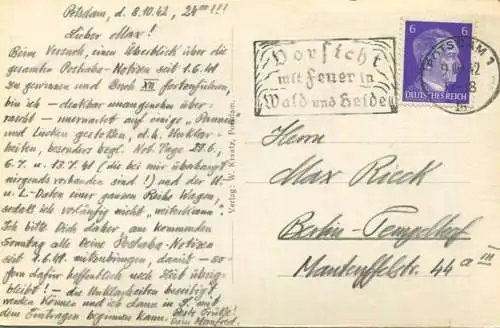 Potsdam, d. 8.10.42, 24°° !!!
Lieber Max!
Beim Versuch, einen Überblick über die
gesamten Notizen seit 1.6.41
zu gewinnen und Buch XII fortzuführen,
bin ich - denkbar unangenehm über-
rascht - unerwartet auf einige "Pannen"
und Lücken gestoßen, d.h. Unklar-
heiten, besonders bezgl. Tage 28.6.,
6.7. u. 13.7.41 (die bei mir überhaupt
nirgends vorhanden sind!) und der U.-
u. L.-Daten einer ganzen Reihe Wagen,
sodaß ich vorläufig nicht "weiterkann".
Ich bitte Dich daher, am kommenden
Sonntag alle Deine Notizen
seit 1.6.41 mitzubringen, damit - so-
fern dafür hoffentlich noch Zeit übrig-
bleibt! - die Unklarheiten beseitigt
werden können und ich dann in mit
den Eintragungen beginnen kann. Beste Grüße!
Dein Manfred.
Verlag: W. Knaetz, Potsdam.
Vorsicht
mit Feuer in
Wald und Heide
6 6
DEUTSCHES REICH
POTSDAM 1
Herrn
Max Rieck
Berlin-Tempelhof
Manteuffelstr. 44a III